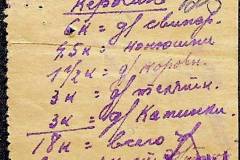 Керосин
6 к = д/ свинар.
4.5 к = конюшни
1 1/2 к = д/ коровн.
3 к = д/ телятн.
3 к = д/ Калинки
18 к = всего